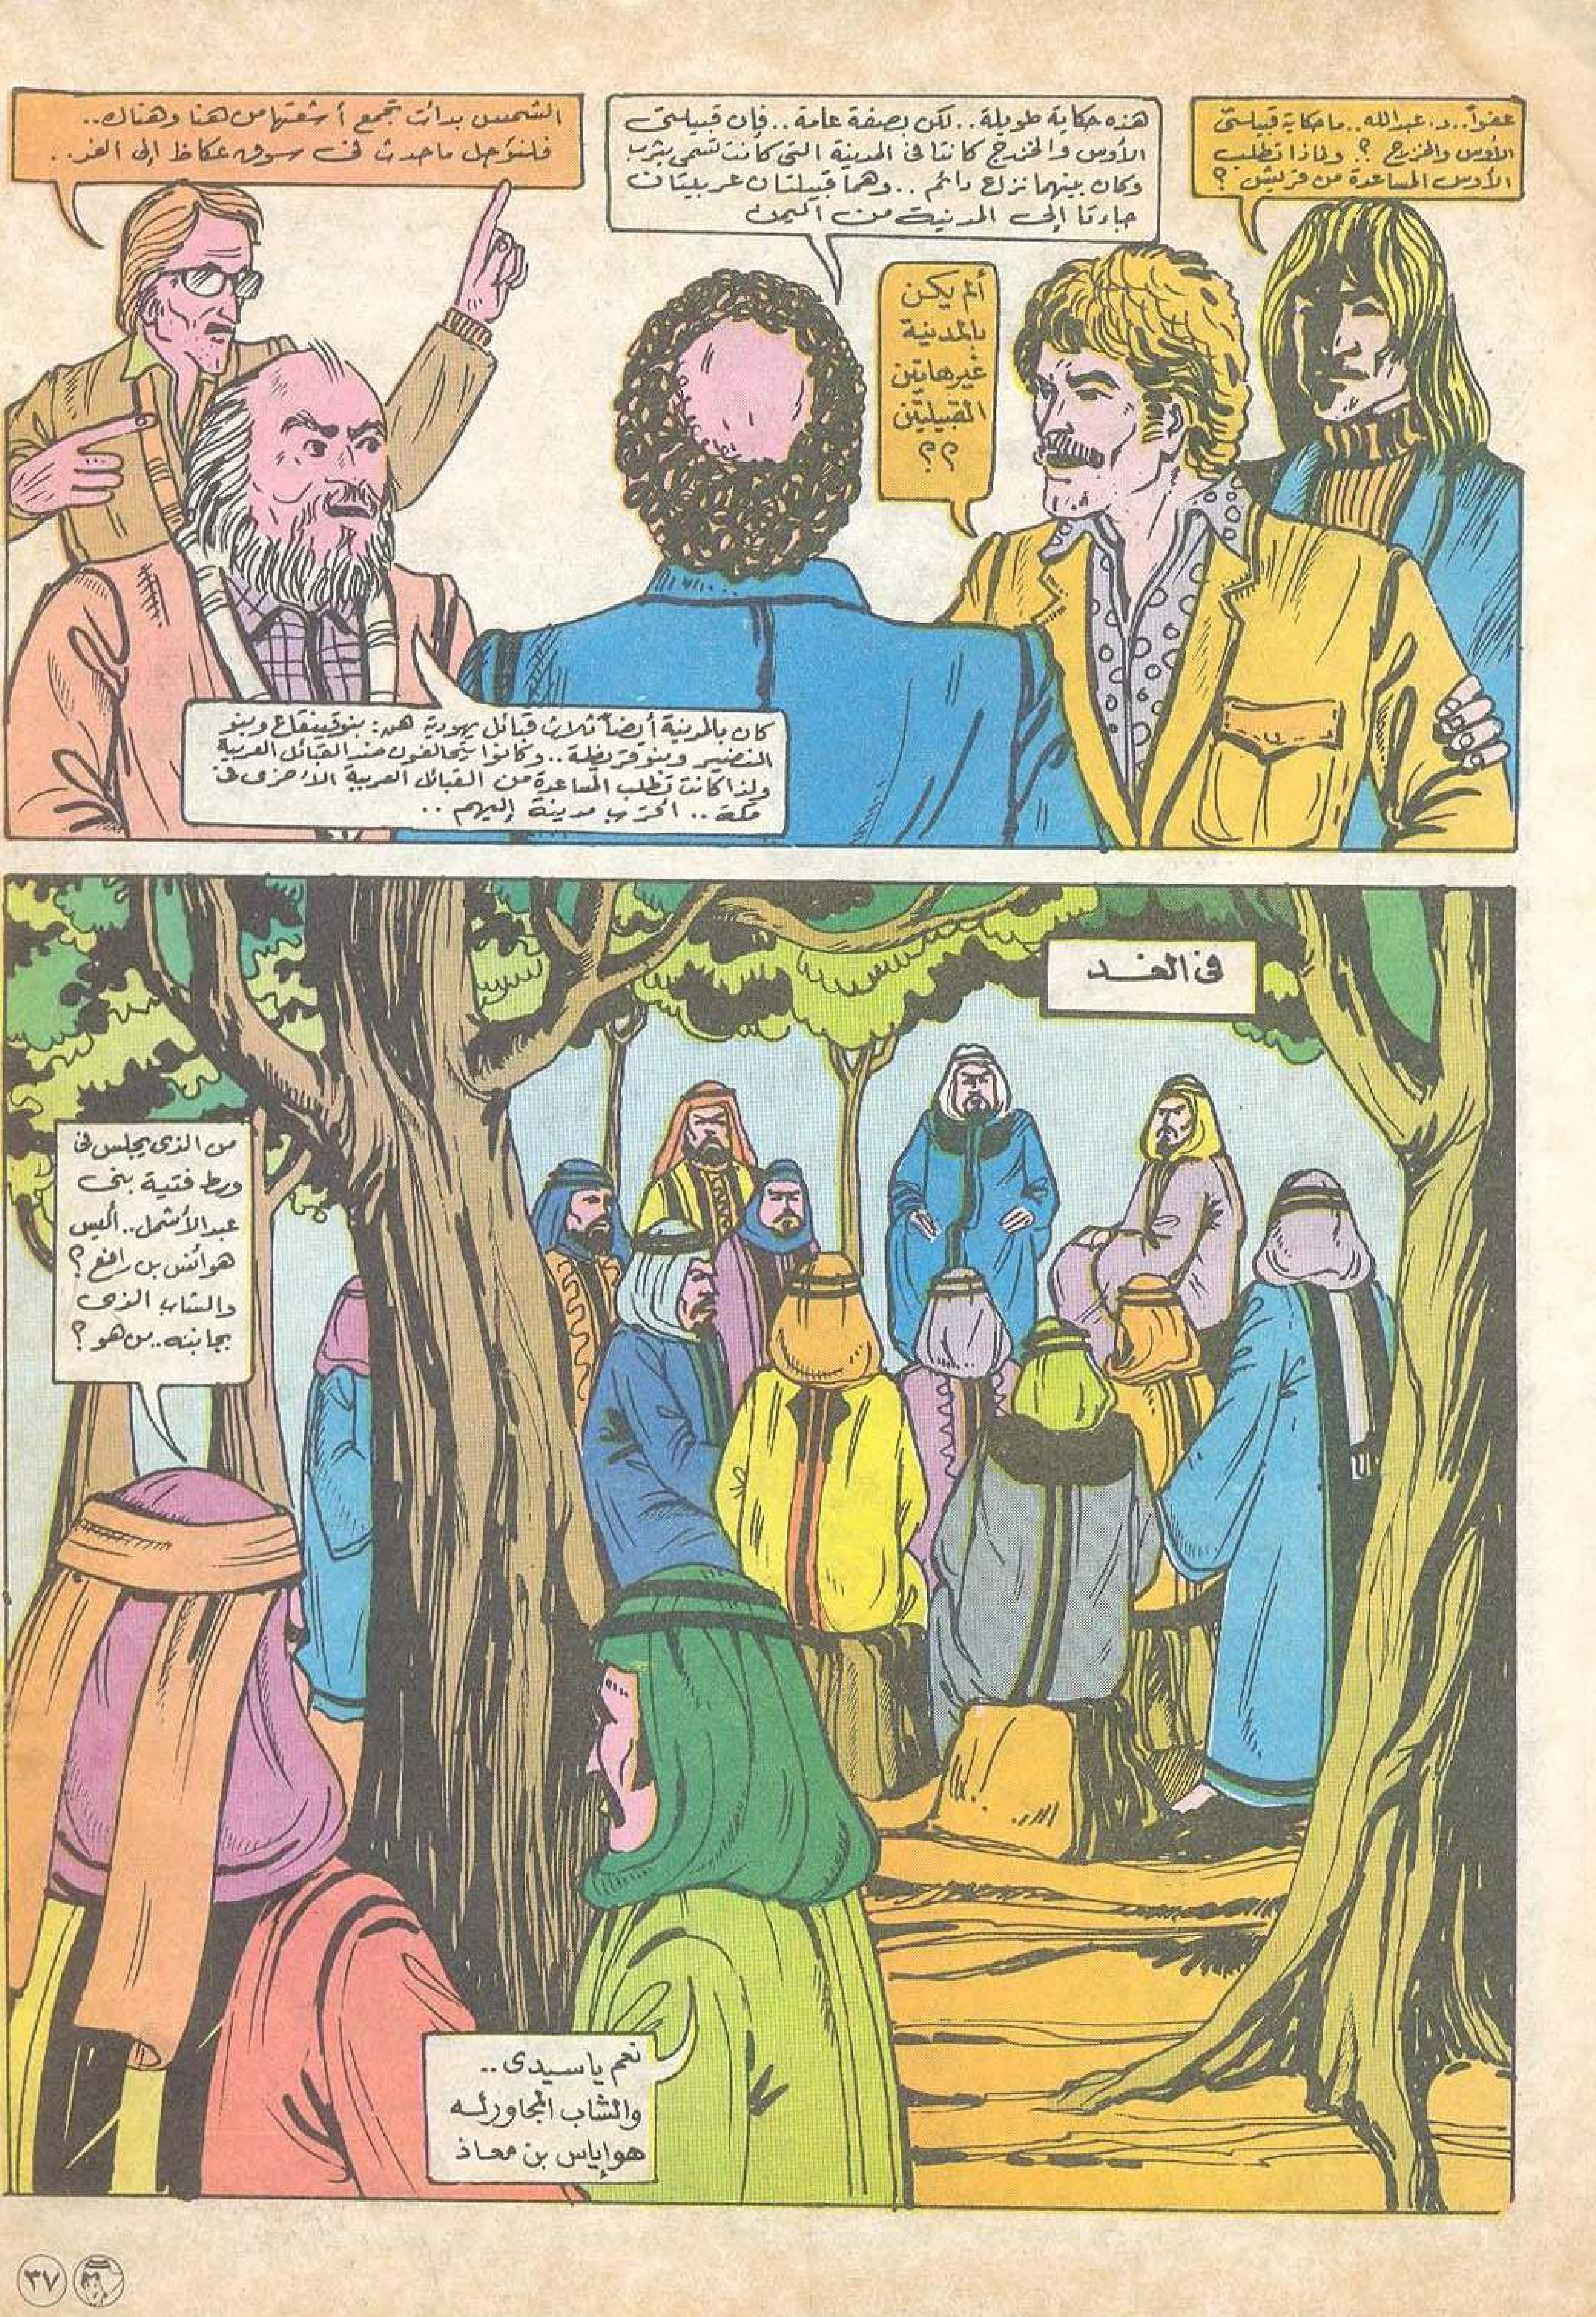 عفواً..د. عبدالله.. ما حكاية قبيلتى
الأوس والخزرج ؟. ولماذا تطلب
الأوس المساعدة من قريش ؟
هذه حكاية طويلة.. لكن بصفة عامة.. فإن قبيلتى
الأوس والخزرج كانتا فى المدينة التى كانت تسمى يثرب
وكان بينهما نزاع دائم .. وهما قبيلتان عربيتان
جاءتا إلى المدينة من اليمن
ألم يكن
بالمدينة
غير هاتين
القبيلتين
؟؟
كان بالمدينة أيضاً ثلاث قبائل يهودية هن: بنو قينقاع وبنو
النضير وبنو قريظة .. وكانوا يتحالفون ضد القبائل العربية
ولذا كانت تطلب المساعدة من القبائل العربية الأخرى فى
مكة .. أقرب مدينة إليهم ..
الشمس بدأت تجمع أشعتها من هنا وهناك..
فلنؤجل ما حدث فى سوق عكاظ إلى الغد..
فى الغد
من الذى يجلس فى
وسط فتية بنى
عبد الأشهل.. أليس
هو أنس بن رافع ؟
والشاب الذى
بجانبه.. من هو ؟
نعم يا سيدى ..
والشاب المجاور له
هو إياس بن معاذ
٣٧